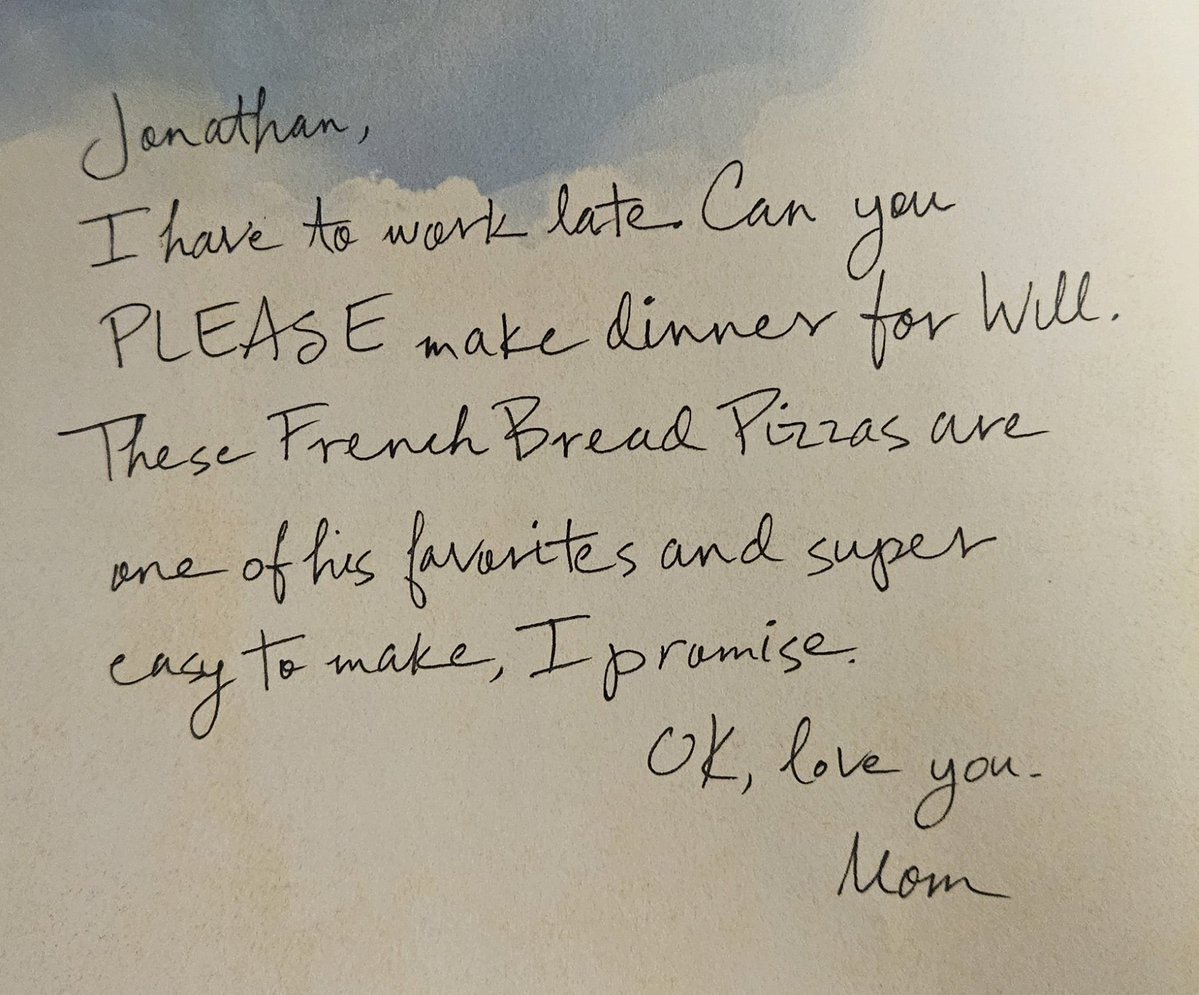 Jonathan,
I have to work late. Can you
PLEASE make dinner for Will.
These French Bread Pizzas are
one of his favorites and super
easy to make, I promise.
OK, love you.
Mom